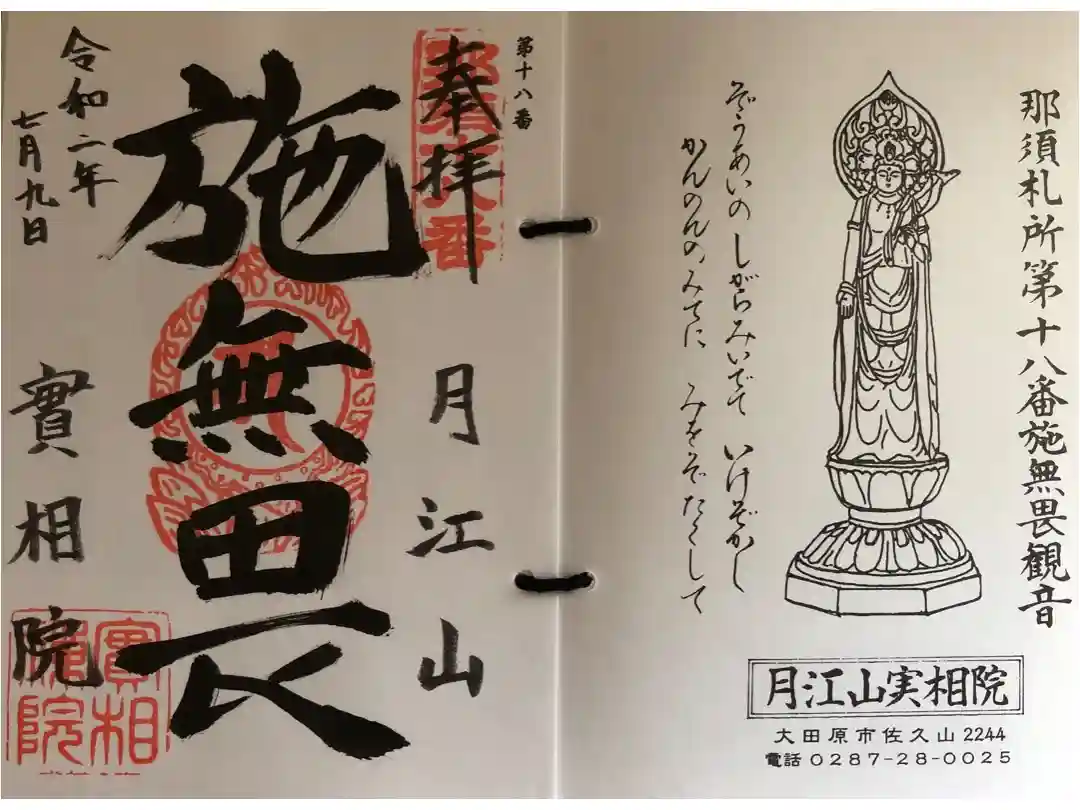 那須札所第十八番施無畏観音
ぞうあいの しがらみいでて いけぞかし
かんのんの みてに みをぞたくして
月江山実相院
大田原市佐久山 2244
電話 0287-28-0025
第十八番
奉拝
月江山
施無畏
令和二年
七月九日
實相院
實相
院